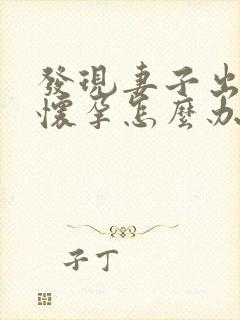 發現妻子出
懷孕怎麼办
子丁